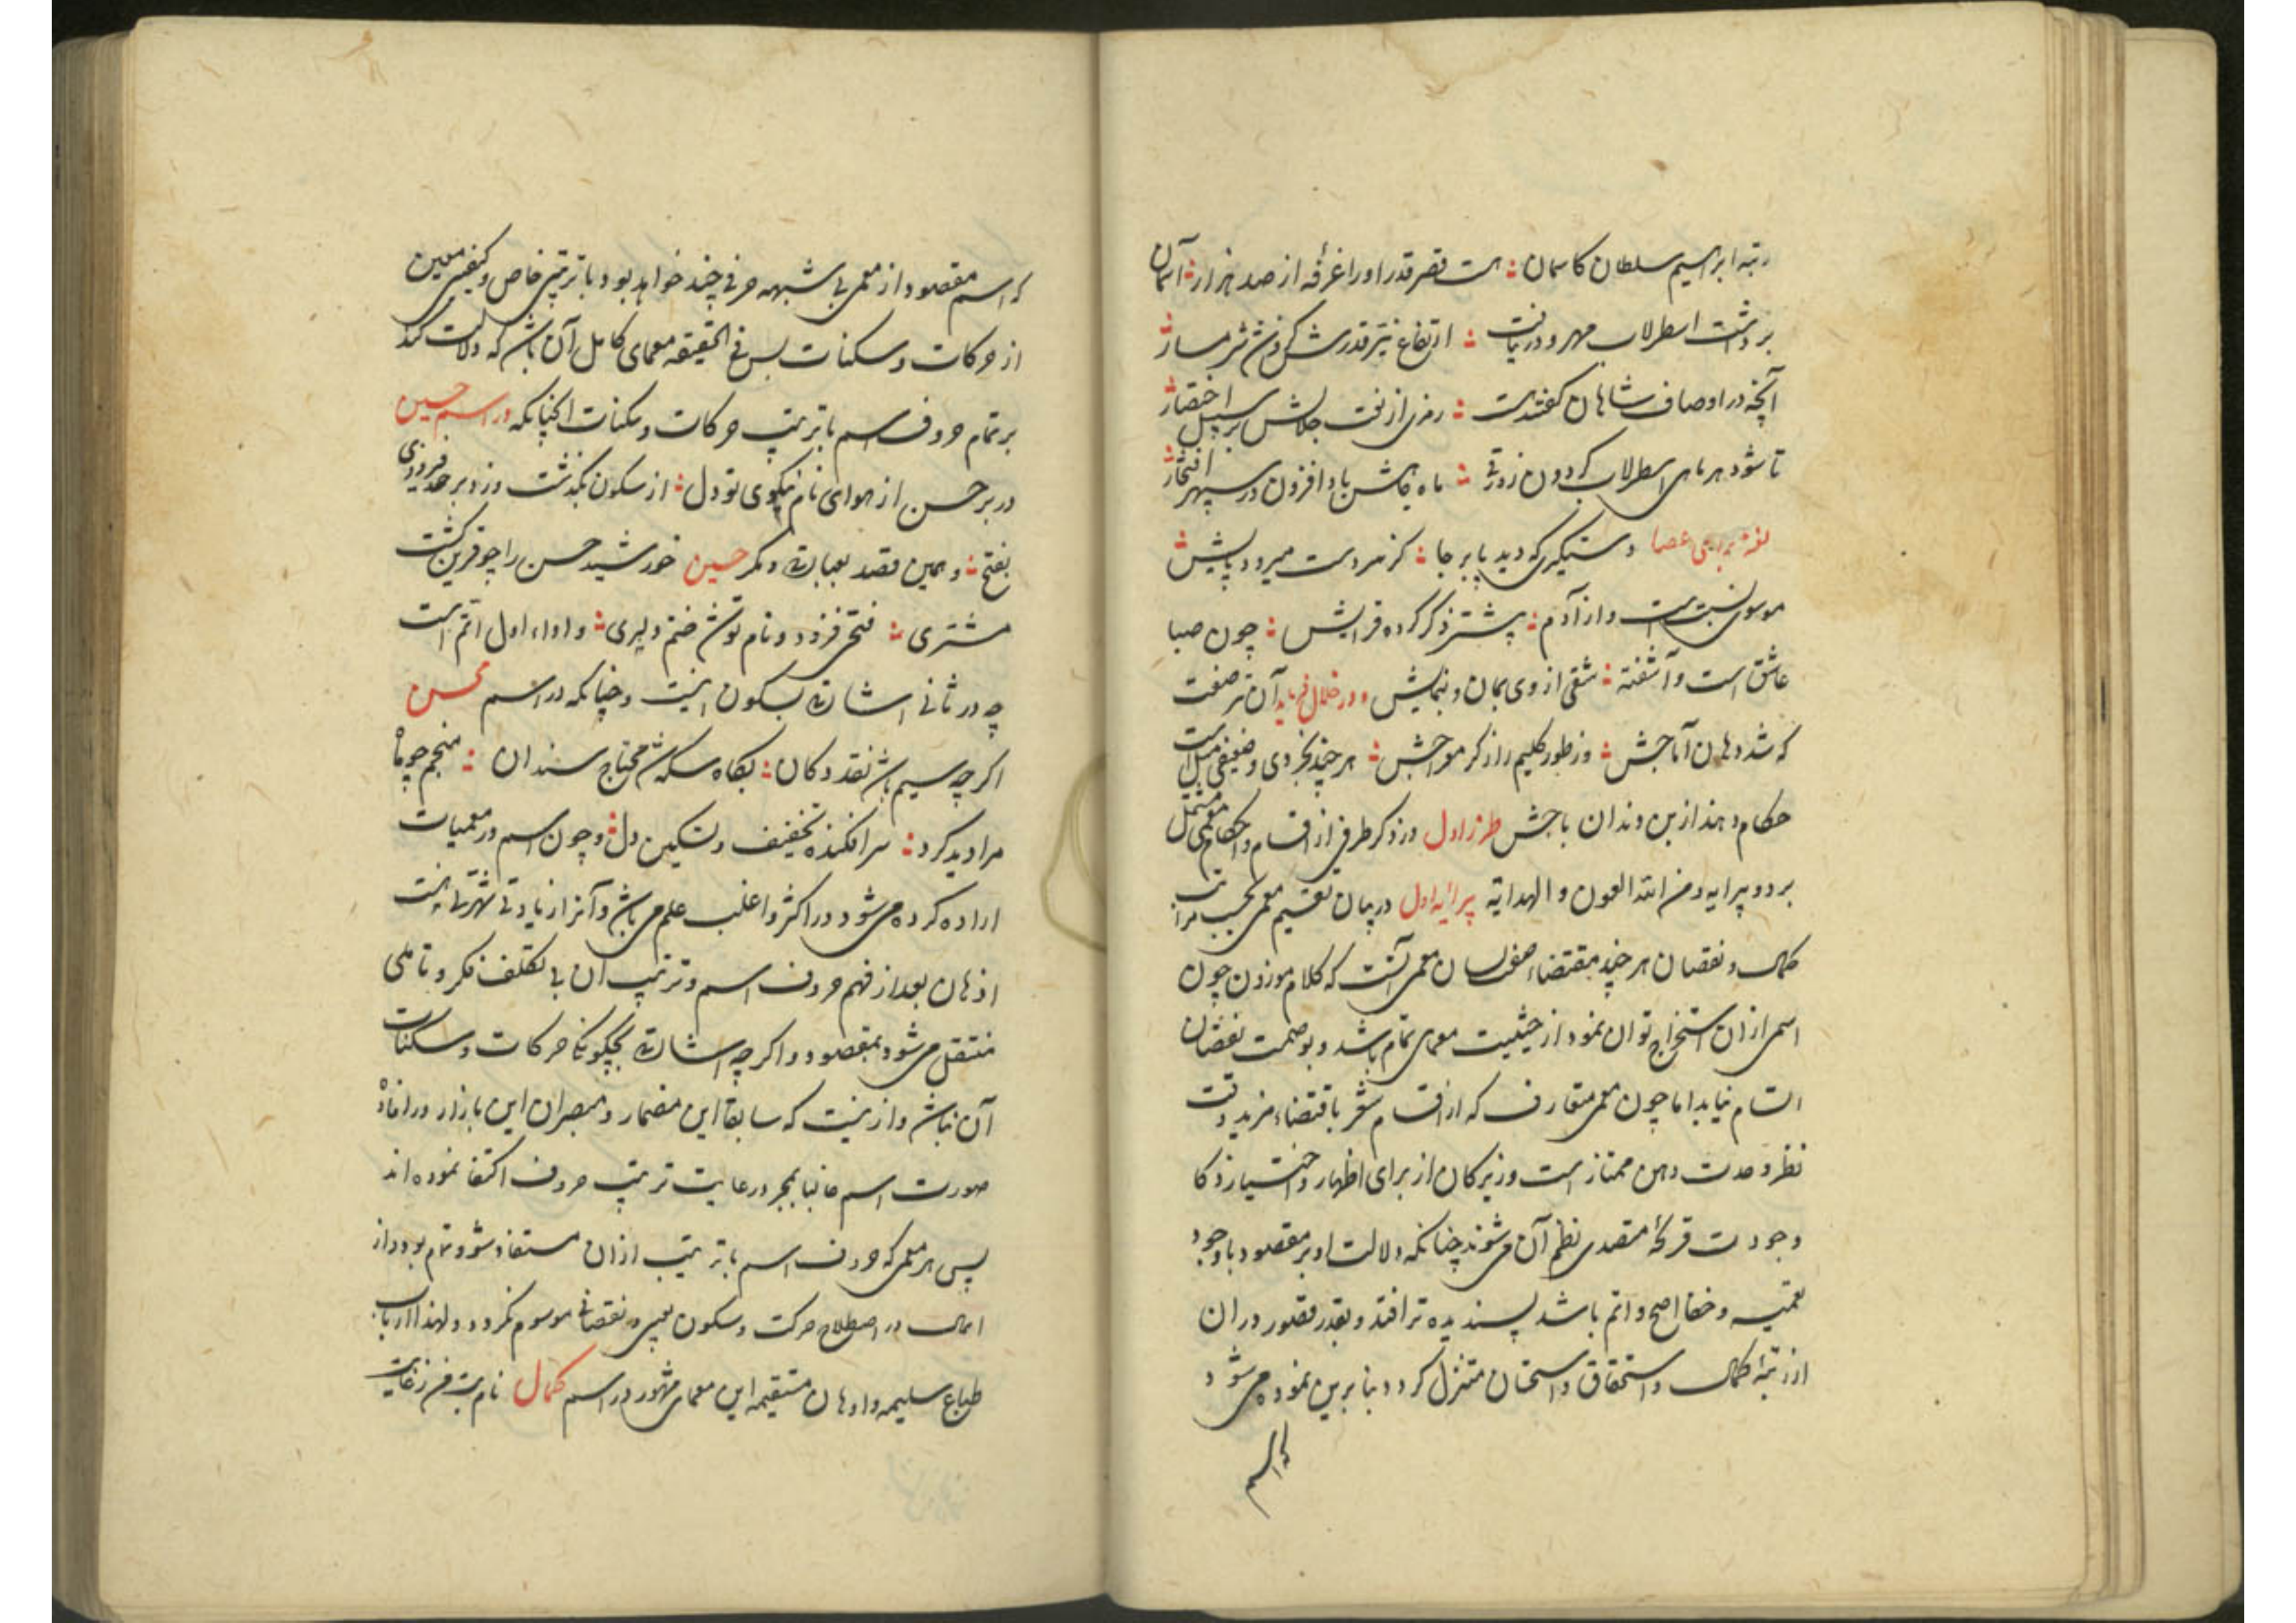 رتبه ابراهیم سلطان کاسمان ؛ هست قصر قدر اورا غرفه از صد هزار ؛ آسمان
برداشت اسطرلاب مهر و دریافت ؛ ارتفاع نیّر قدرش کزوشد شرمسار
آنچه در اوصاف شاهان گفته‌اند ؛ رمزی از نعت جلالش بر سبیل اختصار
تا شود هر ماه اسطرلاب گردون زورقی ؛ ماه جاهش باد افزون در سپهر افتخار
لغز براسمی عصا دستگیری که دید پا بر جا ؛ کز سر دست میرود پایش
موسوی نسبتست و از آدم ؛ پشتر ذکر کرده قرآنش ؛ چون صبا
عاشق است و آشفته ؛ شقی از وی بمان و بنمایش و در خلال فرماید آن نی صفت
که شد دهان آماجش ؛ وز طور کلیم راز کر مواجش ؛ هر چند بخردی و ضعیفی مثل است
حکام دهند از بن دندان باجش طرز اول در ذکر طرفی از اقسام و احکام معمی مشتمل
بر دو پیرایه و من الله العون و الهدایه پیرایه اول در بیان تقسیم معمی بحسب مراتب
کمال و نقصان هر چند بمقتضاء معمی آنست که کلام موزون چون
اسمی ازان استخراج توان نمود از حیثیت معمای تمام باشد و بوصمت نقصان
اتسام نیابد اما چون معمی متعارف که از اقسام شعر باقتضاء مزید دقت
نظر و حدت ذهن ممتاز است و زیرکان از برای اظهار و اختیار ذکا
وجودت قریحه متصدی نظم آن میشوند چنانکه دلالت او بر مقصود با وجود
تعمیه و خفا اصح و اتم باشد پسندیده تر افتد و بقدر قصور در ان
از رتبه کمال و استحقاق و استحسان متنزل گردد بنا برین نموده میشود
که اسم
که اسم مقصود از معمی بی شبهه حرفی چند خواهد بود با ترتیبی خاص و کیفیتی معین
از حرکات و سکنات پس فی الحقیقه معمای کامل آن باشد که دلالت کند
بر تمام حروف اسم با ترتیب حرکات و سکنات چنانکه در اسم حسین
در بر حسن از هوای نام نیکوی تو دل ؛ از سکون بگذشت وزد بر خد فیروزی
بفتح ؛ و همین قصد بعبارة دیگر حسین خورشید حسن را چو قرین گشت
مشتری ؛ فتحی فزود و نام توشد ختم دلبری ؛ و اداء اول اتم است
چه در ثانی اشارة بسکون نیست و چنانکه در اسم محسن
اگر چه سیم باشد نقد دکان ؛ بگاه سکه شد محتاج سندان ؛ منجم چو با
مرا دید کرد ؛ سرافکنده تخفیف و تسکین دل ؛ و چون اسم در معمیات
اراده کرده میشود در اکثر و اغلب علم می باشد و آنرا زیادتی شهرتی است
اذهان بعد از فهم حروف اسم و ترتیب آن بی تکلف فکر و تاملی
منتقل میشود بمقصود و اگر چه اشارة بچگونگی حرکات و سکنات
آن نباشد و ازینست که سابقا این مضمار و مبصران این بازار در افاده
صورت اسم غالبا بمجرد رعایت ترتیب حروف اکتفا نموده اند
پس هر معمی که حروف اسم با ترتیب ازان مستفاد شود تمام بود و از
اهمال در اصطلاح حرکت و سکون بعیبی و نقصانی موسوم نگردد و لهذا ارباب
طباع سلیمه و اذهان مستقیمه این معمای مشهور در اسم کمال نام بت من ز غایت